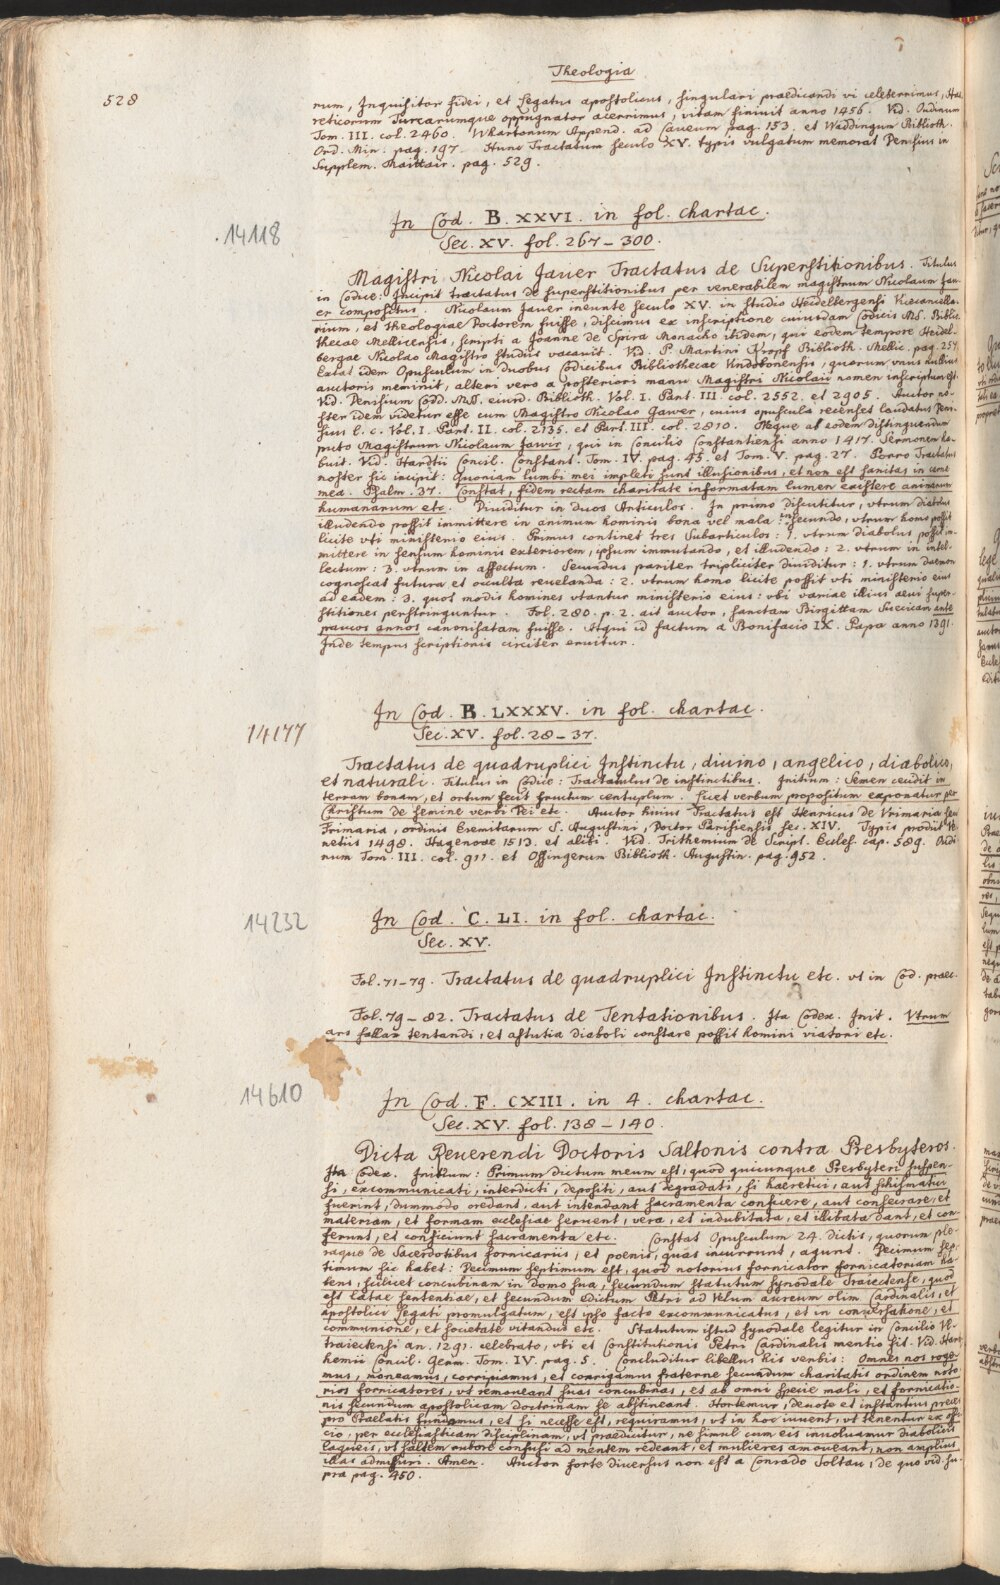 Theologia
528
num, Inquisitor fidei, et Legatus apostolicus, singulari praedicandi vi celeberrimus, Hae-
reticorum Turcarumque oppugnator acerrimus, vitam finiuit anno 1456. Vid. Oudinum
Tom. III. col. 2460. Whartonum Append. ad Caueum pag. 153. et Waddingum Biblioth.
Ord. Min. pag. 197. Hunc Tractatum seculo XV. typis vulgatum memorat Denisius in
Supplem. Maittair. pag. 529.
In Cod. B. XXVI. in fol. chartac.
14118
Sec. XV. fol. 267-300.
Magistri Nicolai Jauer Tractatus de Superstitionibus. Titulus
in Codice: Incipit tractatus de superstitionibus per venerabilem magistrum Nicolaum Jau-
er compositus. Nicolaum Jauer ineunte seculo XV. in studio Heidelbergensi Vicecancella-
rium, et theologiae Doctorem fuisse, discimus ex inscriptione cuiusdam Codicis MS. Biblio-
thecae Mellicensis, scripti a Joanne de Spira Monacho ibidem, qui eodem tempore Heidel-
bergae Nicolao Magistro studiis vacauit. Vid. P. Martini Kropf Biblioth. Mellic. pag. 257.
Extat idem Opusculum in duobus Codicibus Bibliothecae Vindobonensis, quorum unus nullius
auctoris meminit, alteri vero a posteriori manu Magistri Nicolaii nomen inscriptum est.
Vid. Denisium Codd. MSS. eiusd. Biblioth. Vol. I. Part. III. col. 2552. et 2905. Auctor no-
ster idem videtur esse cum Magistro Nicolao Gawer, cuius opuscula recenset laudatus Deni-
sius l. c. Vol. I. Part. II. col. 2135. et Part. III. col. 2810. Neque ab eodem distinguendum
puto Magistrum Nicolaum Jawir, qui in Concilio Constantiensi anno 1417. Sermonem ha-
buit. Vid. Hardtii Concil. Constant. Tom. IV. pag. 45. et Tom. V. pag. 27. Porro Tractatus
noster sic incipit: Quoniam lumbi mei impleti sunt illusionibus, et non est sanitas in carne
mea. Psalm. 37. Constat, fidem rectam charitate informatam lumen existere animarum
humanarum etc. Diuiditur in duos Articulos. In primo discutitur, vtrum diabolus
illudendo possit immittere in animum hominis bona vel mala: in secundo, vtrum homo possit
licite vti ministerio eius. Primus continet tres Subarticulos: 1. vtrum diabolus possit im-
mittere in sensum hominis exteriorem, ipsum immutando, et illudendo: 2. vtrum in intel-
lectum: 3. vtrum in affectum. Secundus pariter tripliciter diuiditur: 1. vtrum daemon
cognoscat futura et occulta reuelanda: 2. vtrum homo licite possit vti ministerio eius
ad eadem: 3. quot modis homines vtantur ministerio eius: vbi variae illius aeui super-
stitiones perstringuntur. Fol. 280. p. 2. ait auctor, sanctam Birgittam Suecicam ante
paucos annos canonisatam fuisse. Atqui id factum a Bonifacio IX. Papa anno 1391.
Inde tempus scriptionis circiter eruitur.
In Cod. B. LXXXV. in fol. chartac.
14177
Sec. XV. fol. 28-37.
Tractatus de quadruplici Instinctu, diuino, angelico, diabolico,
et naturali. Titulus in Codice: Tractatulus de instinctibus. Initium: Semen cecidit in
terram bonam, et ortum fecit fructum centuplum. Licet verbum propositum exponatur per
Christum de semine verbi Dei etc. Auctor huius Tractatus est Henricus de Vrimaria seu
Frimaria, ordinis Eremitarum S. Augustini, Doctor Parisiensis sec. XIV. Typis prodiit Ve-
netiis 1498. Hagenoae 1513. et alibi. Vid. Trithemium de Script. Eccles. cap. 589. Oudi-
num Tom. III. col. 911. et Ossingerum Biblioth. Augustin. pag. 952.
In Cod. C. LI. in fol. chartac.
14232
Sec. XV.
Fol. 71-79. Tractatus de quadruplici Instinctu etc. vt in Cod. praec.
Fol. 79-82. Tractatus de Tentationibus. Ita Codex. Init. Vtrum
ars fallax tentandi, et astutia diaboli constare possit homini viatori etc.
In Cod. F. CXIII. in 4. chartac.
14610
Sec. XV. fol. 138-140.
Dicta Reuerendi Doctoris Saltonis contra Presbyteros.
Ita Codex. Initium: Primum dictum meum est, quod quicunque Presbyteri suspen-
si, excommunicati, interdicti, depositi, aut degradati, si haeretici, aut schismatici
fuerint, dummodo credant, aut intendant sacramenta conficere, aut consecrare, et
materiam, et formam ecclesiae seruent, vera, et indubitata, et illibata dant, et con-
ferunt, et conficiunt sacramenta etc. Constat Opusculum 24. dictis, quorum ple-
raque de Sacerdotibus fornicariis, et poenis, quas incurrunt, agunt. Decimum sep-
timum sic habet: Decimum septimum est, quod notorius fornicator fornicatoriam ha-
bens, scilicet concubinam in domo sua, secundum statutum synodale Traiectense, quod
est latae sententiae, et secundum edictum Petri ad Velum aureum olim Cardinalis, et
apostolici Legati promulgatum, est ipso facto excommunicatus, et in conuersatione, et
communione, et societate vitandus etc. Statutum istud synodale legitur in Concilio Vl-
traiectensi an. 1291. celebrato, vbi et Constitutionis Petri Cardinalis mentio fit. Vid. Hart-
hemii Concil. Germ. Tom. IV. pag. 5. Concluditur libellus his verbis: Omnes nos roge-
mus, moneamus, corripiamus, et corrigamus fraterne secundum charitatis ordinem noto-
rios fornicatores, vt remoueant suas concubinas, et ab omni specie mali, et fornicatio-
nis secundum apostolicam doctrinam se abstineant. Hortemur, deuote et instantius preces
pro Praelatis fundamus, et si necesse est, requiramus, vt in hoc iuuent, vt tenentur ex offi-
cio, per ecclesiasticam disciplinam, vt praedicitur, ne simul cum eis inuoluamur diabolicis
laqueis, vt saltem rubore confusi ad mentem redeant, et mulieres amoueant, non amplius
illas admissuri. Amen. Auctor forte diuersus non est a Conrado Soltau, de quo vid. su-
pra pag. 450.